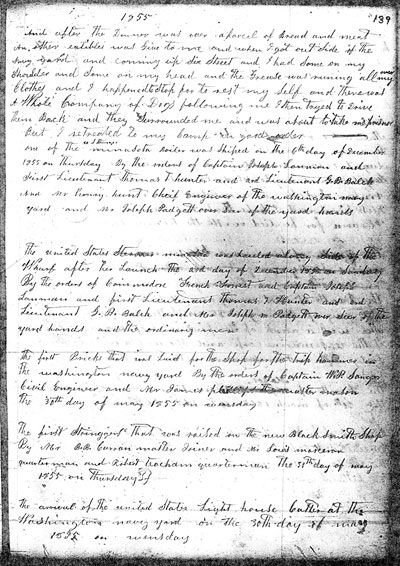 1855
139
And after the Dinner was over a parcel of Bread and meat
and other eatibles was Give to me and when I got out side of the
navy yard and coming up the Street and I had Some on my
Shoulder and Some on my head and the Grease was runing all over my
Clothes and I happened to Stop for to rest my Self and there was
A Whole Company of Dogs following me I then tryed to Drive
them Back and they Surrounded me and was about to take me prisoner
But I retreated to my Camp in good order
one of the u s Steamer minnsota Boiler was Shiped on the 6th day of December
1855 on Thursday By the orders of Captain Joseph Lanman and
First Lieutenant Thomas T hunter and 2d Lieutenant G B Balch
and Mr hunt Cheif Engineer of the washington navy
yard and Mr Joseph Padgett over Seer of the yard hands
The united States minnsota was hauled along Side of the
Wharf after her Launch the 3rd day of December 1855 on
By the orders of Commodore French Forrest and Captain Joseph
Lanman and first Lieutenant Thomas T Hunter and 2d
Lieutenant G B Balch and Mr Joseph m Padgett over Seer of the
yard hands and the ordinary men
The first Bricks that was Laid for the Shop for the Trip hammer in
the washington navy yard By the orders of Captain W P Sanger
Civil Engineer and Mr master mason
the 30th day of may 1855 on wensday
The first Stringers that was raised on the new Black Smith Shop
By Mr master Joiner and Mr Louis
quarterman and Robert quarterman the 31th day of may
1855 on Thursday
The arrival of the united States Light house Cutter at the
Washington navy yard on the 30th day of may
1855 on wensday